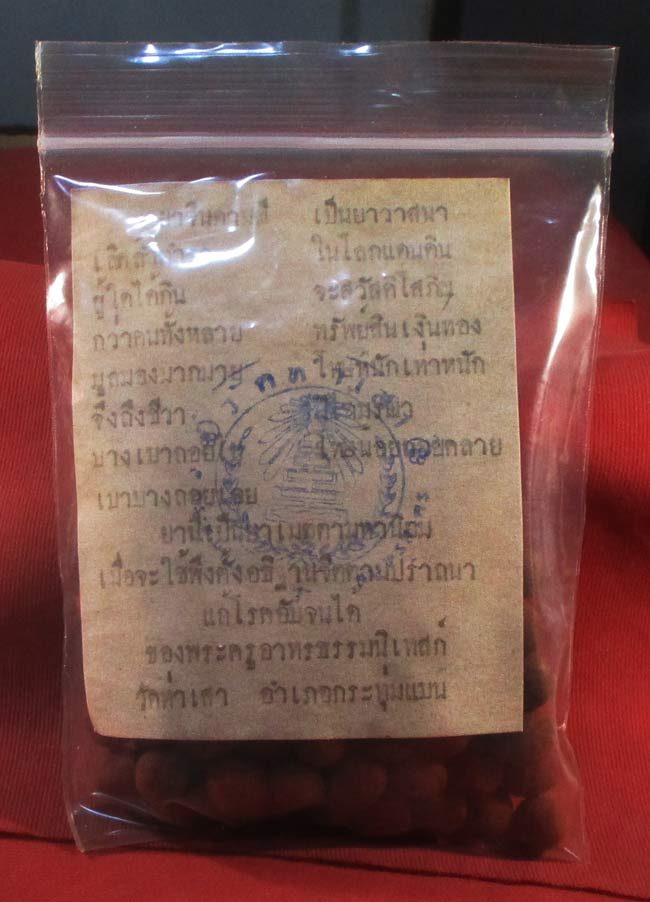 ยาจินดามณี เป็นยาวาสนา
ในโลกแดนดิน
ผู้ใดได้กิน จะสวัสดิโสภิณ
กว่าคนทั้งหลาย ทรัพย์สินเงินทอง
มูลมองมากมาย โทษหนักเท่าหนัก
จึงถึงชีวา
บางเบาถอยไป โทษน้อยถอยคลาย
เบาบางถอยเอย
ยานี้เป็นยาเมตตามหานิยม
เมื่อจะใช้พึงตั้งอธิษฐานจิตตามปรารถนา
แก้โรคอับจนได้
ของพระครูอาทรธรรมนิเทสก์
วัดท่าเสา อำเภอกระทุ่มแบน